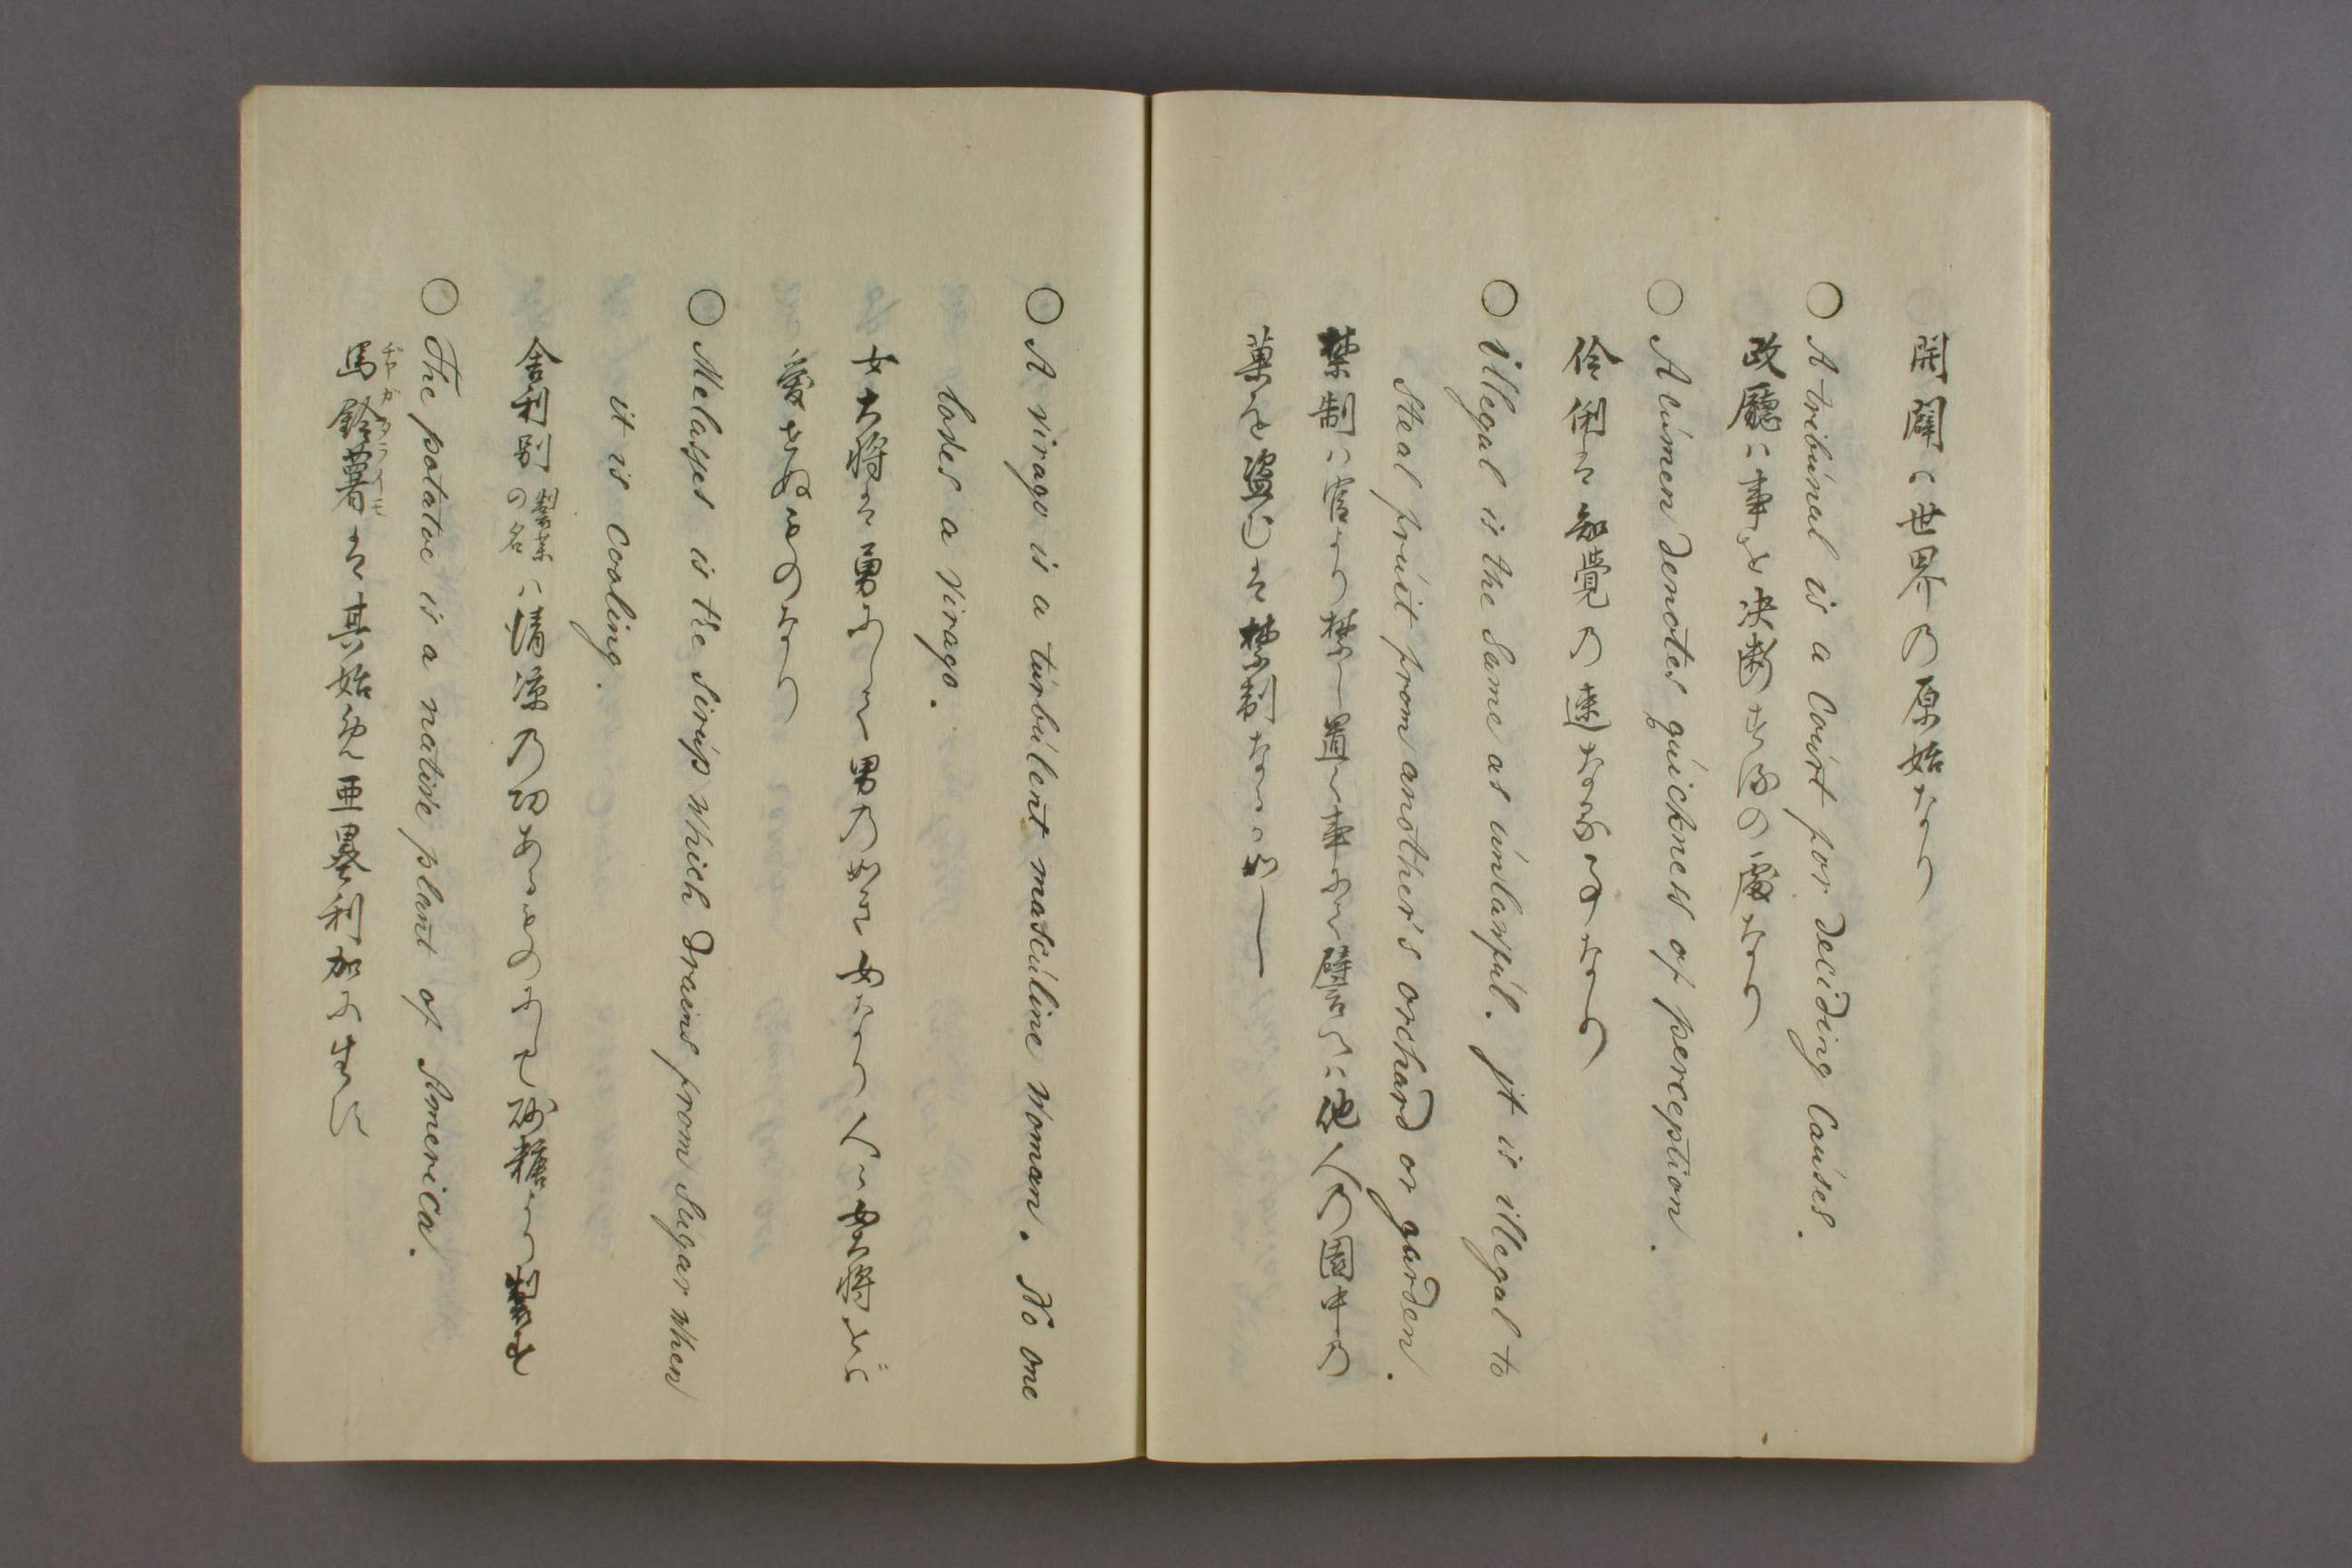 開闢ハ世界乃原始なり
○ A tribunal is a Court for deciding Causes.
政廳ハ事を決断する所の處なり
○ Acumen denotes quickness of perception.
伶俐ハ知覺の速なる事なり
○ illegal is the Same as unlawful. It is illegal to
Steal fruit from another's orchard or garden.
禁制ハ官より禁し置く事にて譬へハ他人の園中の
菓を盗むハ禁制なるか如し
○ A virago is a turbulent masculine Woman. No one
loves a virago.
女大将ハ勇にして男の如き女なり人ハ女大将をバ
愛せぬものなり
○ Melasses is the Sirup which drains from Sugar when
it is Cooling.
舎利別製薬の名ハ清凉乃功あるものにて砂糖より製す
○ The potatoe is a native plant of America.
馬鈴薯ハ其始め亜墨利加に生す